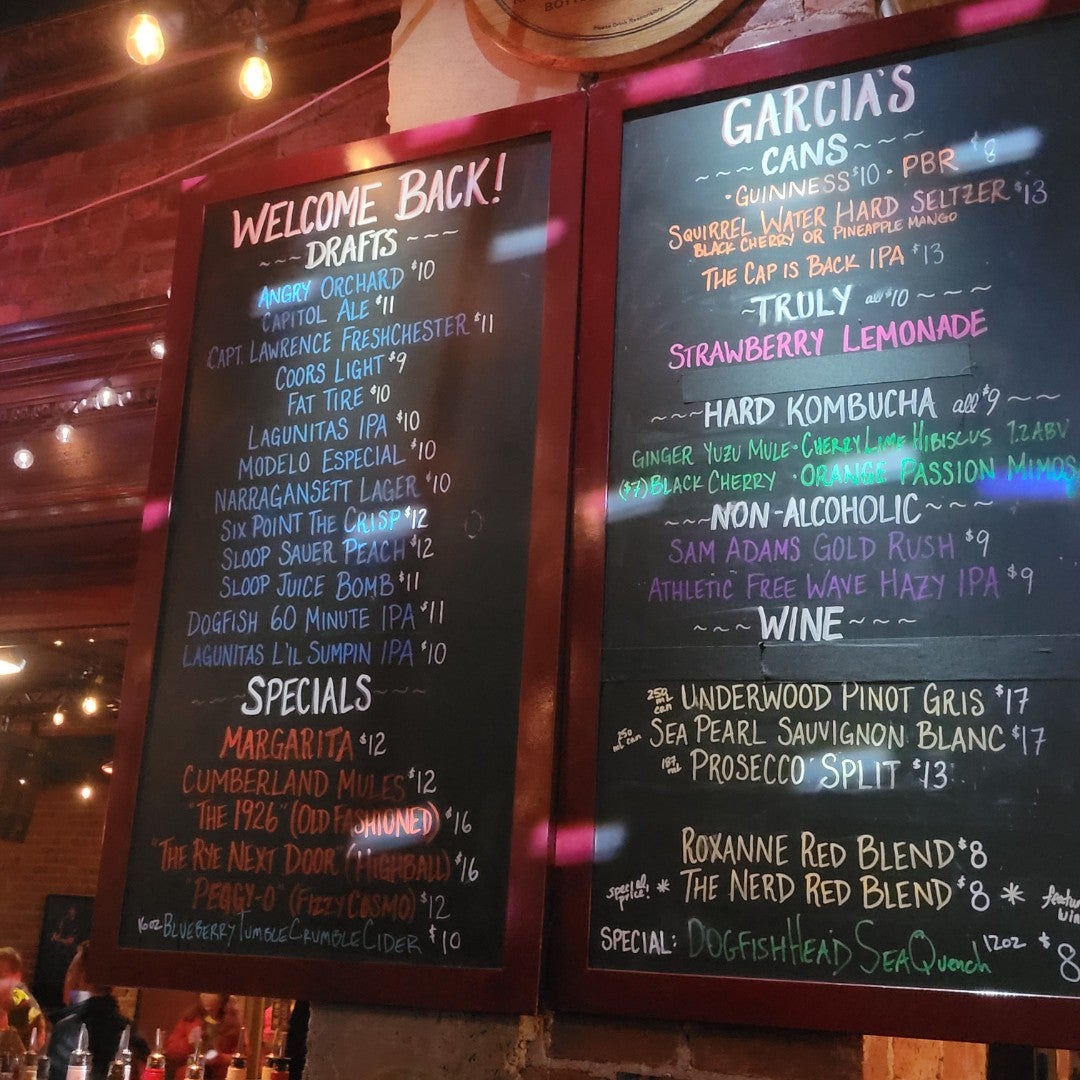 BOTT
Please Drink Responsibly
WELCOME BACK!
~~~DRAFTS~~~
ANGRY ORCHARD $10
CAPITOL ALE $11
CAPT. LAWRENCE FRESHCHESTER $11
COORS LIGHT $9
FAT TIRE $10
LAGUNITAS IPA $10
MODELO ESPECIAL $10
NARRAGANSETT LAGER $10
SIX POINT THE CRISP $12
SLOOP SAUER PEACH $12
SLOOP JUICE BOMB $11
DOGFISH 60 MINUTE IPA $11
LAGUNITAS L'IL SUMPIN IPA $10
~~~SPECIALS~~~
MARGARITA $12
CUMBERLAND MULES $12
"THE 1926" (OLD FASHIONED) $16
"THE RYE NEXT DOOR" (HIGHBALL) $16
"PEGGY-O" (FIZZY COSMO) $12
16oz BLUEBERRY TUMBLE CRUMBLE CIDER $10
GARCIA'S
~~~CANS~~~
·GUINNESS $10 · PBR $8
SQUIRREL WATER HARD SELTZER $13
BLACK CHERRY OR PINEAPPLE MANGO
THE CAP IS BACK IPA $13
~TRULY all $10~~~
STRAWBERRY LEMONADE
~~~HARD KOMBUCHA all $9~~
GINGER YUZU MULE · CHERRY LIME HIBISCUS 7.2ABV
($7) BLACK CHERRY · ORANGE PASSION MIMOS
~~~NON-ALCOHOLIC~~~
SAM ADAMS GOLD RUSH $9
ATHLETIC FREE WAVE HAZY IPA $9
~~~WINE~~~
250 mL can UNDERWOOD PINOT GRIS $17
250 mL can SEA PEARL SAUVIGNON BLANC $17
187 mL PROSECCO SPLIT $13
ROXANNE RED BLEND $8
special price! * THE NERD RED BLEND $8 * featu win
SPECIAL: DOGFISHHEAD SEAQUENCH 12oz $8